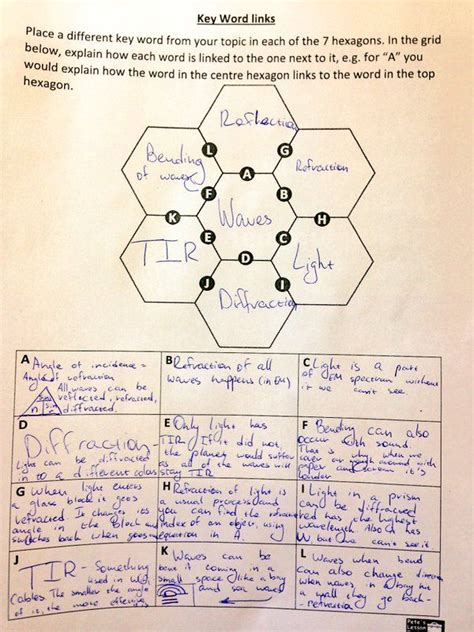 Key Word links
Place a different key word from your topic in each of the 7 hexagons. In the grid
below, explain how each word is linked to the one next to it, e.g. for "A" you
would explain how the word in the centre hexagon links to the word in the top
hexagon.
Reflection
L
G
Bending
of waves
A
Refraction
F
B
Waves
K
H
E
C
TIR
D
Light
J
I
Diffraction
A Angle of incidence =
Angle of refraction
All waves can be
reflected, refracted,
diffracted.
B Refraction of all
waves happens (in EM)
C Light is a part
of EM spectrum without
it we can't see
D
Diffraction-
Light can be diffracted
in to a different colors
E Only light has
TIR If it did not,
the planet would suffer
as all of the waves will
stay TIR
F Bending can also
occur with sound
That is why when we
paper and it's
louder
G When light enters
a glass block it goes
refracted Is changes its
angle in the Block and
switches back when goes
H Refraction of light is
a usual process and
you can find the refractive
index of an object, using
equation in A.
I Light in a prism
can be diffracted
red has the highest
wavelength Also has
but we can't see it
J
TIR - Something
used in
Cables The smaller the angle
of it, the more effective
K Waves can be
bent if coming in a
small space like a bay
and sea waves
L Waves when bend
can also change direction
when waves in a bay hit
a wall they go back -
- refraction
Pete's
Lesson